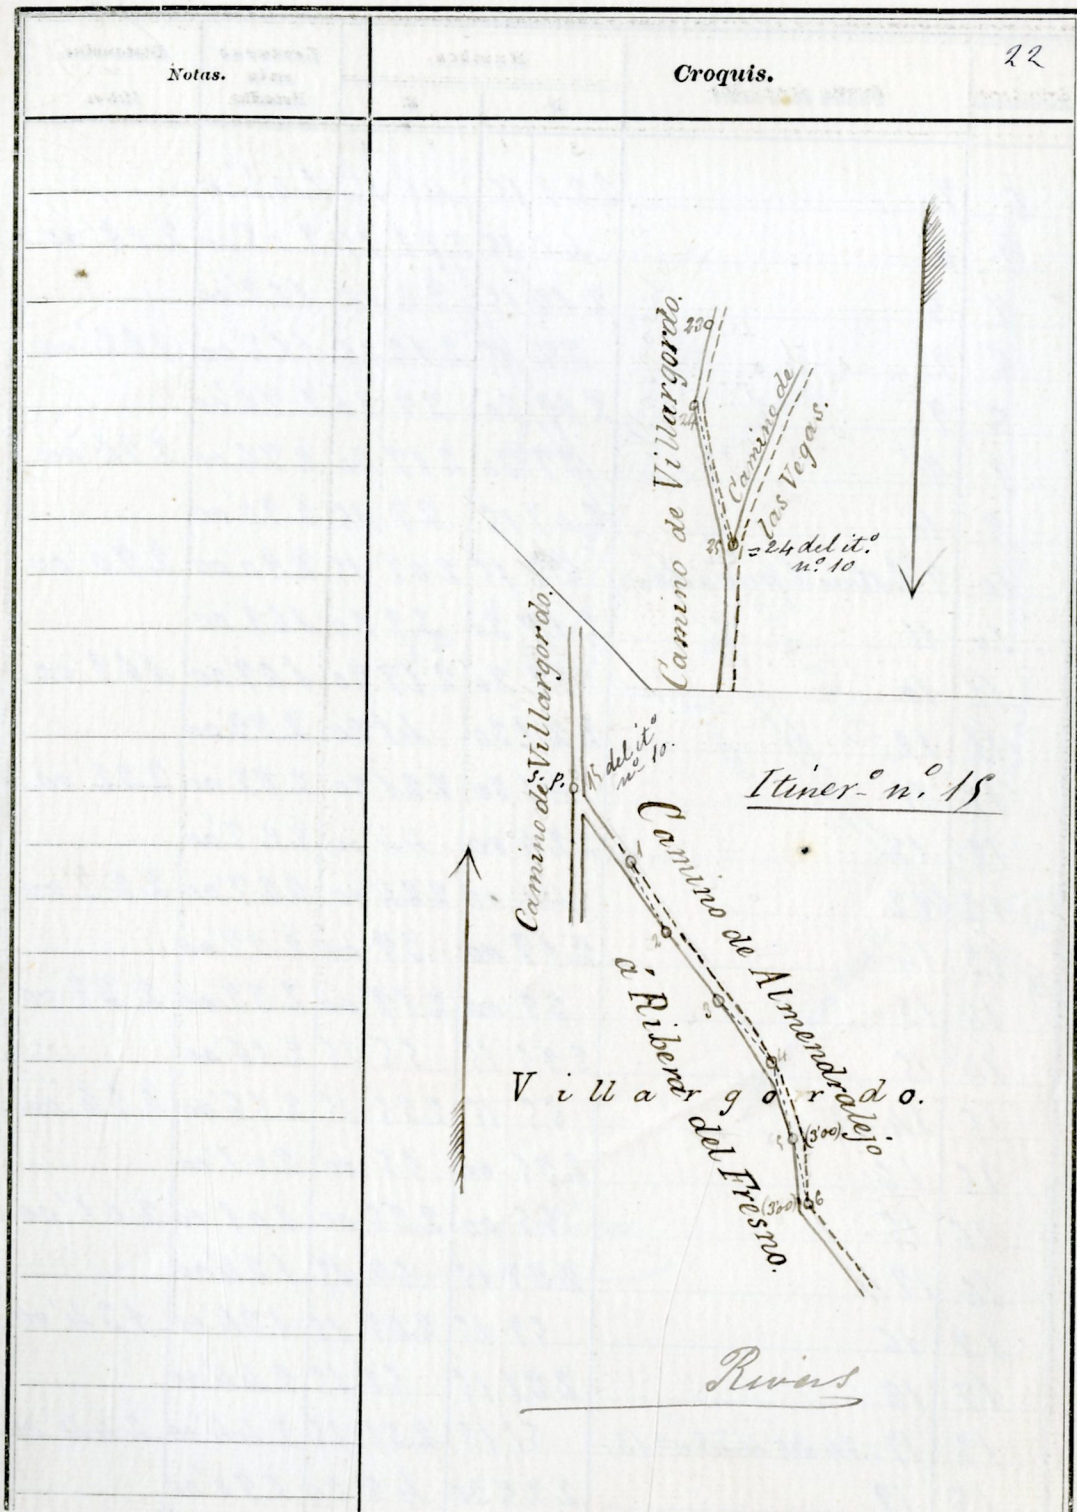 Notas.
Croquis.
22
Camino de Villargordo.
23
24
Camino de
las Vegas.
25
=24 del it.º
nº 10
Camino de Villargordo.
S. P.
15 del itº
nº 10.
Itiner.º nº. 15
1
Camino de Almendralejo
2
á Ribera del Fresno.
3
4
Villargordo.
5
(3'00)
(3'00)
6